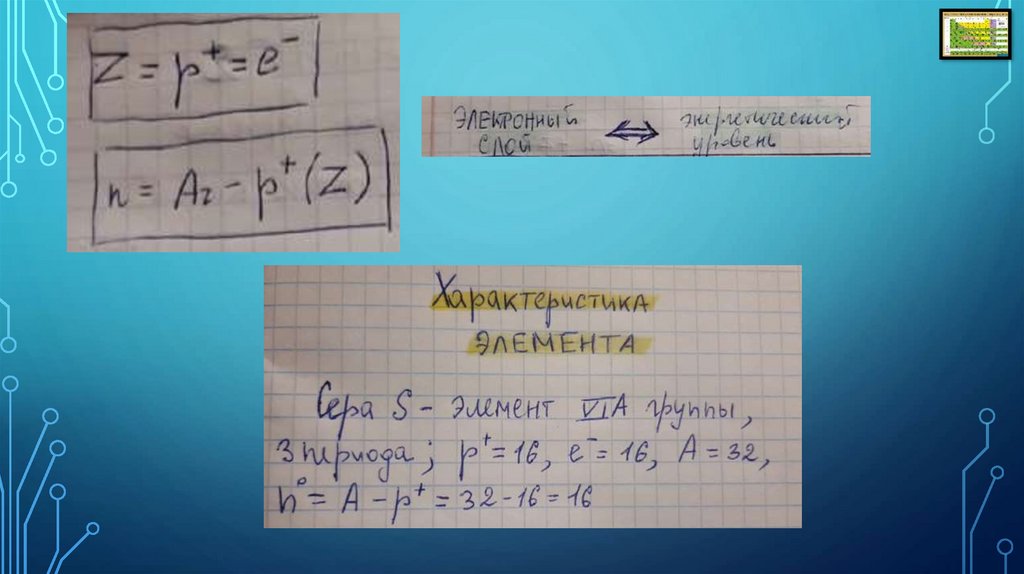 Z = p⁺ = e⁻
n = Ar - p⁺ (Z)
ЭЛЕКТРОННЫЙ СЛОЙ ⟺ энергетический уровень
Характеристика
ЭЛЕМЕНТА
Сера S - элемент VIA группы,
3 периода; p⁺ = 16, e⁻ = 16, A = 32,
n⁰ = A - p⁺ = 32 - 16 = 16